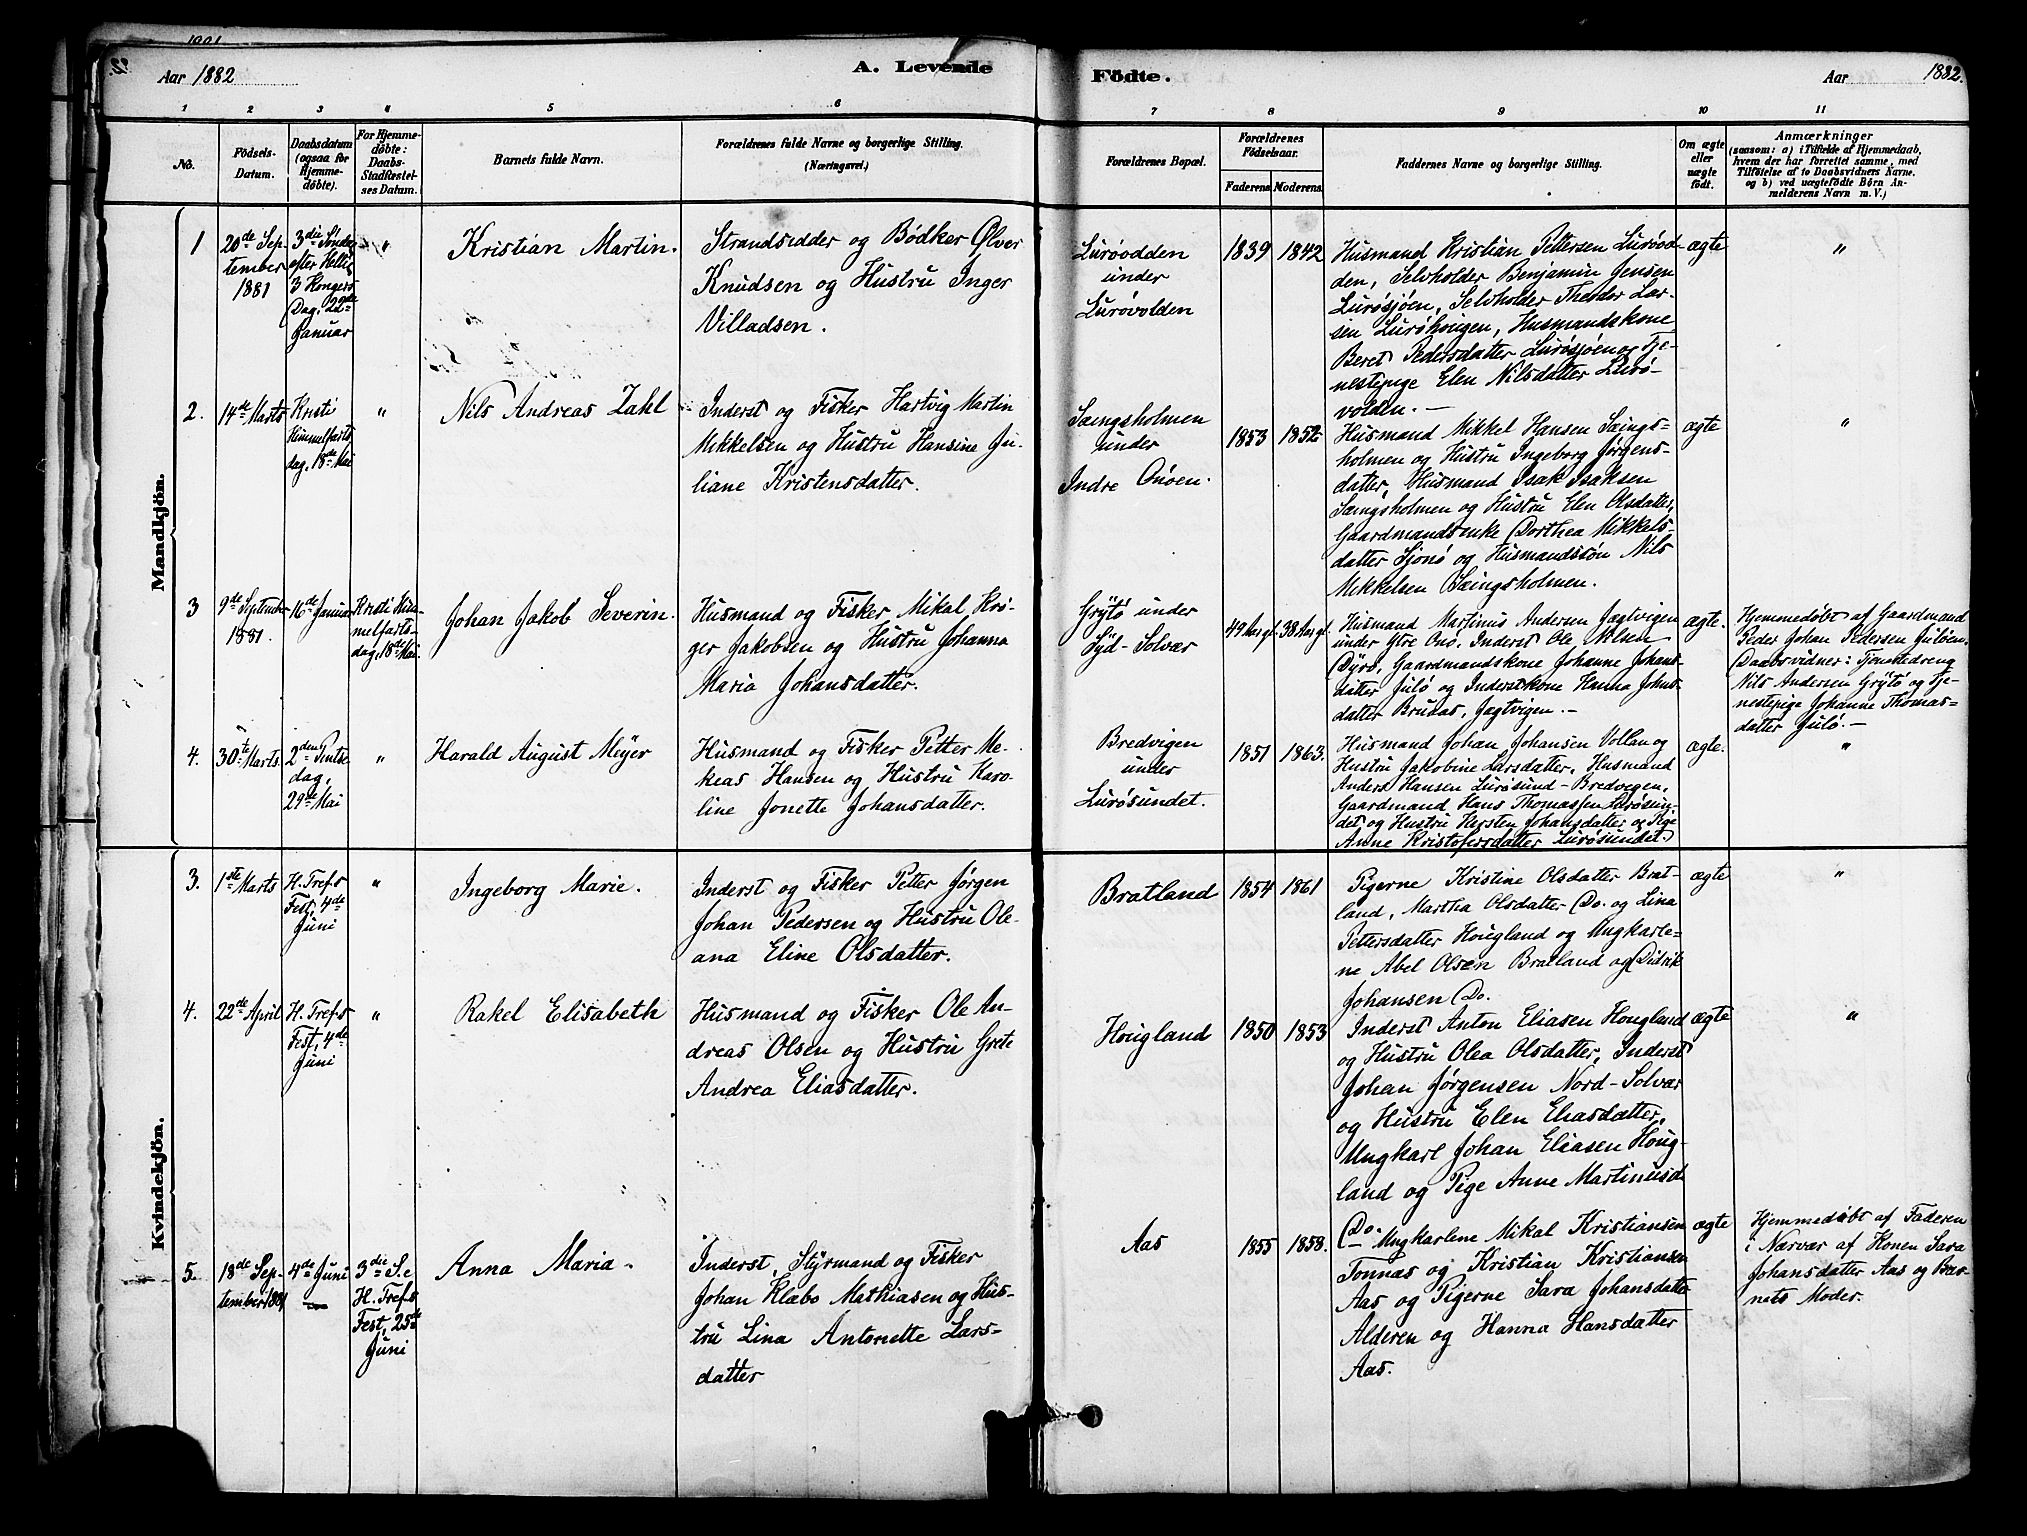 Aar 1882
A. Levende
Födte.
Aar 1882.
1 2 3 4 5 6 7 8 9 10 11
No.
Födsels-
Datum.
Daabsdatum
(ogsaa for
Hjemme-
döbte).
For Hjemme-
döbte:
Daabs-
Stadfæstel-
ses Datum.
Barnets fulde Navn.
Forældrenes fulde Navne og borgerlige Stilling.
(Næringsvei.)
Forældrenes Bopæl.
Forældrenes
Födselsaar.
Faderens.
Moderens.
Faddernes Navne og borgerlige Stilling.
Om ægte
eller
uægte
födt.
Anmærkninger
(saasom: a) i Tilfælde af Hjemmedaab,
hvem der har forrettet samme, med
Tilföielse af to Daabsvidners Navne,
og b) ved uægtefödte Börn An-
melderens Navn m. V.)
Mandkjön.
1
20de Sep-
tember
1881
3die Søndag
efter Hellig
3 Kongers
Dag, 22de
Januar
"
Kristian Martin.
Strandsidder og Bødker Ølver
Knudsen og Hustru Inger
Villadsen.
Lurøodden
under
Lurøvolden
1839
1842
Husmand Kristian Pettersen Lurøod-
den, Selvholder Benjamin Jensen
Lurøsjøen, Selvholder Theodor Lar-
sen Lurøhougen, Husmandskone
Beret Pedersdatter Lurøsjøen og Tje-
nestepige Elen Nilsdatter Lurø-
volden. —
ægte
"
2.
14de Marts
Kristi
Himmelfarts
dag, 18de Mai
"
Nils Andreas Zahl
Inderst og Fisker Hartvig Martin
Mikkelsen og Hustru Hansine Ju-
liane Kristensdatter.
Sængsholmen
under
Indre Onøen.
1853
1852
Husmand Mikkel Hansen Sængs-
holmen og Hustru Ingeborg Jørgens-
datter, Husmand Isak Isaksen
Sængsholmen og Hustru Elen Olsdatter,
Gaardmandsenke Dorthea Mikkels-
datter Sjonø og Husmandssøn Nils
Mikkelsen Sængsholmen.
ægte
"
3
9de September
1881.
16de Januar
Kristi Him-
melfarts-
dag, 18de Mai
Johan Jakob Severin.
Husmand og Fisker Mikal Krø-
ger Jakobsen og Hustru Johanna
Maria Johansdatter.
Grytø under
Syd-Solvær
49 Aar gl.
38 Aar gl.
Husmand Martinus Andersen Jagtvigen
under Ytre Onø, Inderst Ole Olsen
Dyrø, Gaardmandskone Johanne Johans-
datter Julø og Inderstkone Hanna Johns-
datter Bruaas, Jagtvigen. —
ægte.
Hjemmedøbt af Gaardmand
Peder Johan Pedersen Juløen.
Daabsvidner: Tjenestedreng
Nils Andersen Grytø og Tje-
nestepige Johanne Thomas-
datter Julø. —
4.
30te Marts
2den Pintse
dag,
29de Mai
"
Harald August Meyer
Husmand og Fisker Petter Me-
keas Hansen og Hustru Karo-
line Jonette Johansdatter.
Bredvigen
under
Lurøsundet.
1851
1863.
Husmand Johan Johansen Vollan og
Hustru Jakobine Larsdatter, Husmand
Anders Hansen Lurøsund-Bredvigen,
Gaardmand Hans Thomassen Lurøsun-
det og Hustru Kersten Johansdatter og Pige
Anne Kristofersdatter Lurøsundet.
ægte.
"
Kvindekjön.
3.
1ste Marts
H. Tref.s
Fest, 4de
Juni
"
Ingeborg Marie.
Inderst og Fisker Petter Jørgen
Johan Pedersen og Hustru Ole-
ana Eline Olsdatter.
Bratland
1854
1861
Pigerne Kristine Olsdatter Brat-
land, Martha Olsdatter Do. og Lina
Pettersdatter Hougland og Ungkarle-
ne Abel Olsen Bratland og Didrik
Johansen Do.
ægte
"
4.
22de April
H. Tref.s
Fest, 4de
Juni
"
Rakel Elisabeth
Husmand og Fisker Ole An-
dreas Olsen og Hustru Grete
Andrea Eliasdatter.
Hougland
1850
1853
Inderst Anton Eliasen Hougland
og Hustru Olea Olsdatter, Inderst
Johan Jørgensen Nord-Solvær
og Hustru Elen Eliasdatter,
Ungkarl Johan Eliasen Houg-
land og Pige Anne Martinusd.
Do.
ægte
"
5.
18de Sep-
tember 1881
4de Juni
3die S.e
H. Tref.s
Fest, 25de
Juni
Anna Maria.
Inderst, Styrmand og Fisker
Johan Klæbo Mathiasen og Hus-
tru Lina Antonette Lars-
datter
Aas
1855
1858.
Ungkarlene Mikal Kristiansen
Tonnas og Kristian Kristiansen
Aas og Pigerne Sara Johansdatter
Alderen og Hanna Hansdatter
Aas.
ægte
Hjemmedøbt af Faderen
i Nærvær af Konen Sara
Johansdatter Aas og Bar-
nets Moder.